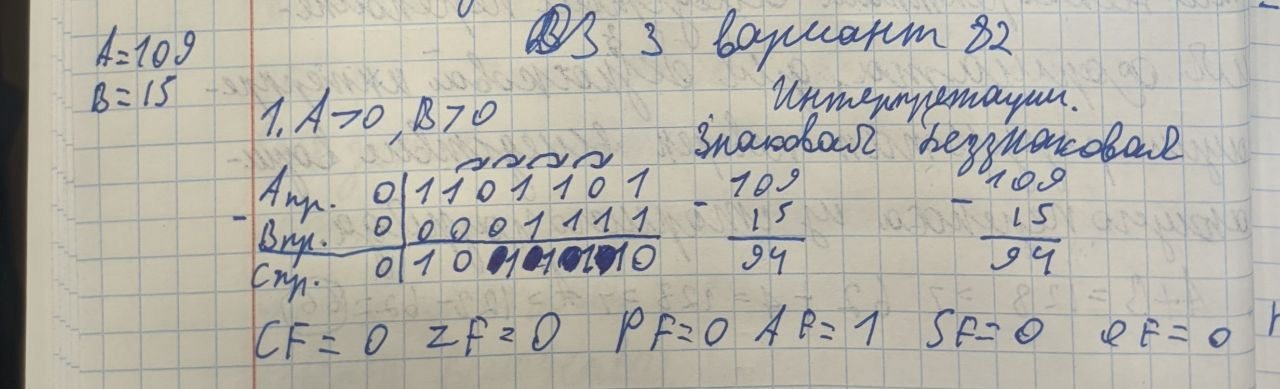 A=109
B=15
ДЗ 3 вариант 82
1. A>0, B>0
Интерпретации.
Знаковая Беззнаковая
Aпр. 0|1101101 109 109
- Bпр. 0|0001111 - 15 - 15
Cпр. 0|1011110 94 94
CF=0 ZF=0 PF=0 AF=1 SF=0 OF=0